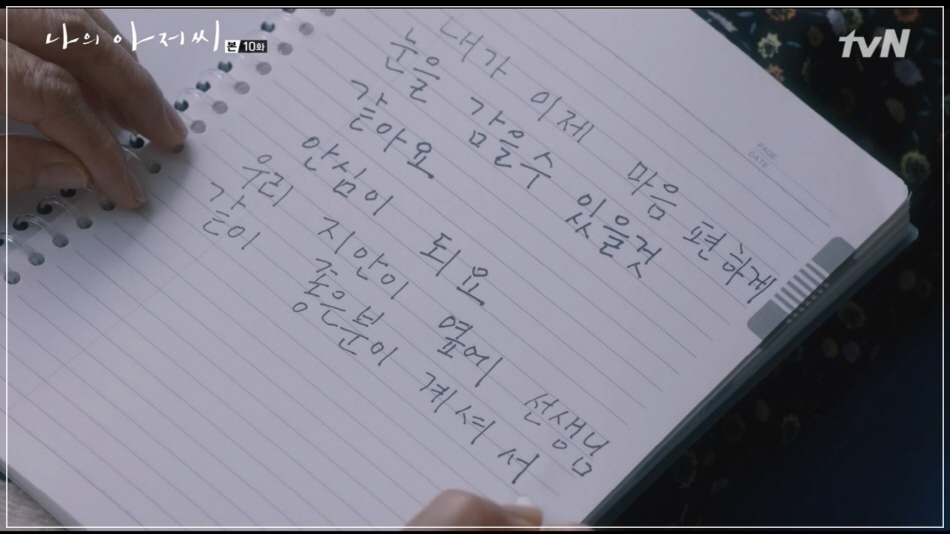 나의 아저씨
본 10화
tvN
PAGE
DATE
내가 이제 마음 편하게
눈을 감을수 있을것
같아요
안심이 되요
우리 지안이 옆에 선생님
같이 좋은분이 계셔서